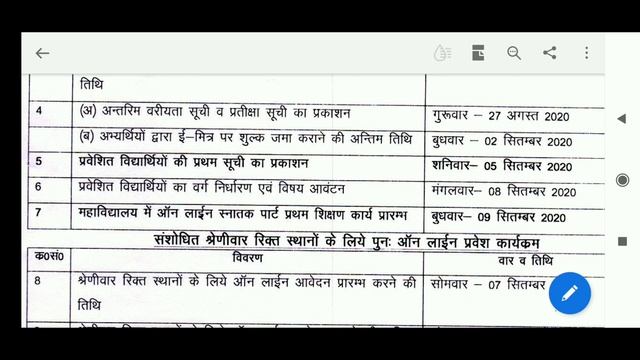 तिथि
4 (अ) अन्तरिम वरीयता सूची व प्रतीक्षा सूची का प्रकाशन गुरूवार – 27 अगस्त 2020
(ब) अभ्यर्थियों द्वारा ई–मित्र पर शुल्क जमा कराने की अन्तिम तिथि बुधवार – 02 सितम्बर 2020
5 प्रवेशित विद्यार्थियों की प्रथम सूची का प्रकाशन शनिवार– 05 सितम्बर 2020
6 प्रवेशित विद्यार्थियों का वर्ग निर्धारण एवं विषय आवंटन मंगलवार– 08 सितम्बर 2020
7 महाविद्यालय में ऑन लाईन स्नातक पार्ट प्रथम शिक्षण कार्य प्रारम्भ बुधवार– 09 सितम्बर 2020
संशोधित श्रेणीवार रिक्त स्थानों के लिये पुनः ऑन लाईन प्रवेश कार्यक्रम
क०सं० विवरण वार व तिथि
8 श्रेणीवार रिक्त स्थानों के लिये ऑन लाईन आवेदन प्रारम्भ करने की सोमवार – 07 सितम्बर
तिथि